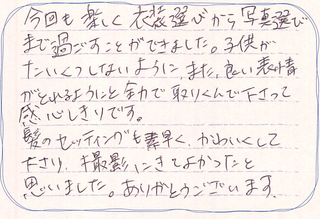 今回も楽しく衣装選びから写真選び
まで過ごすことができました。子供が
たいくつしないように、また、良い表情
がとれるようにと全力で取りくんで下さって
感心しきりです。
髪のセッティングも素早く、かわいくして
下さり、撮影にきてよかったと
思いました。ありがとうございます。